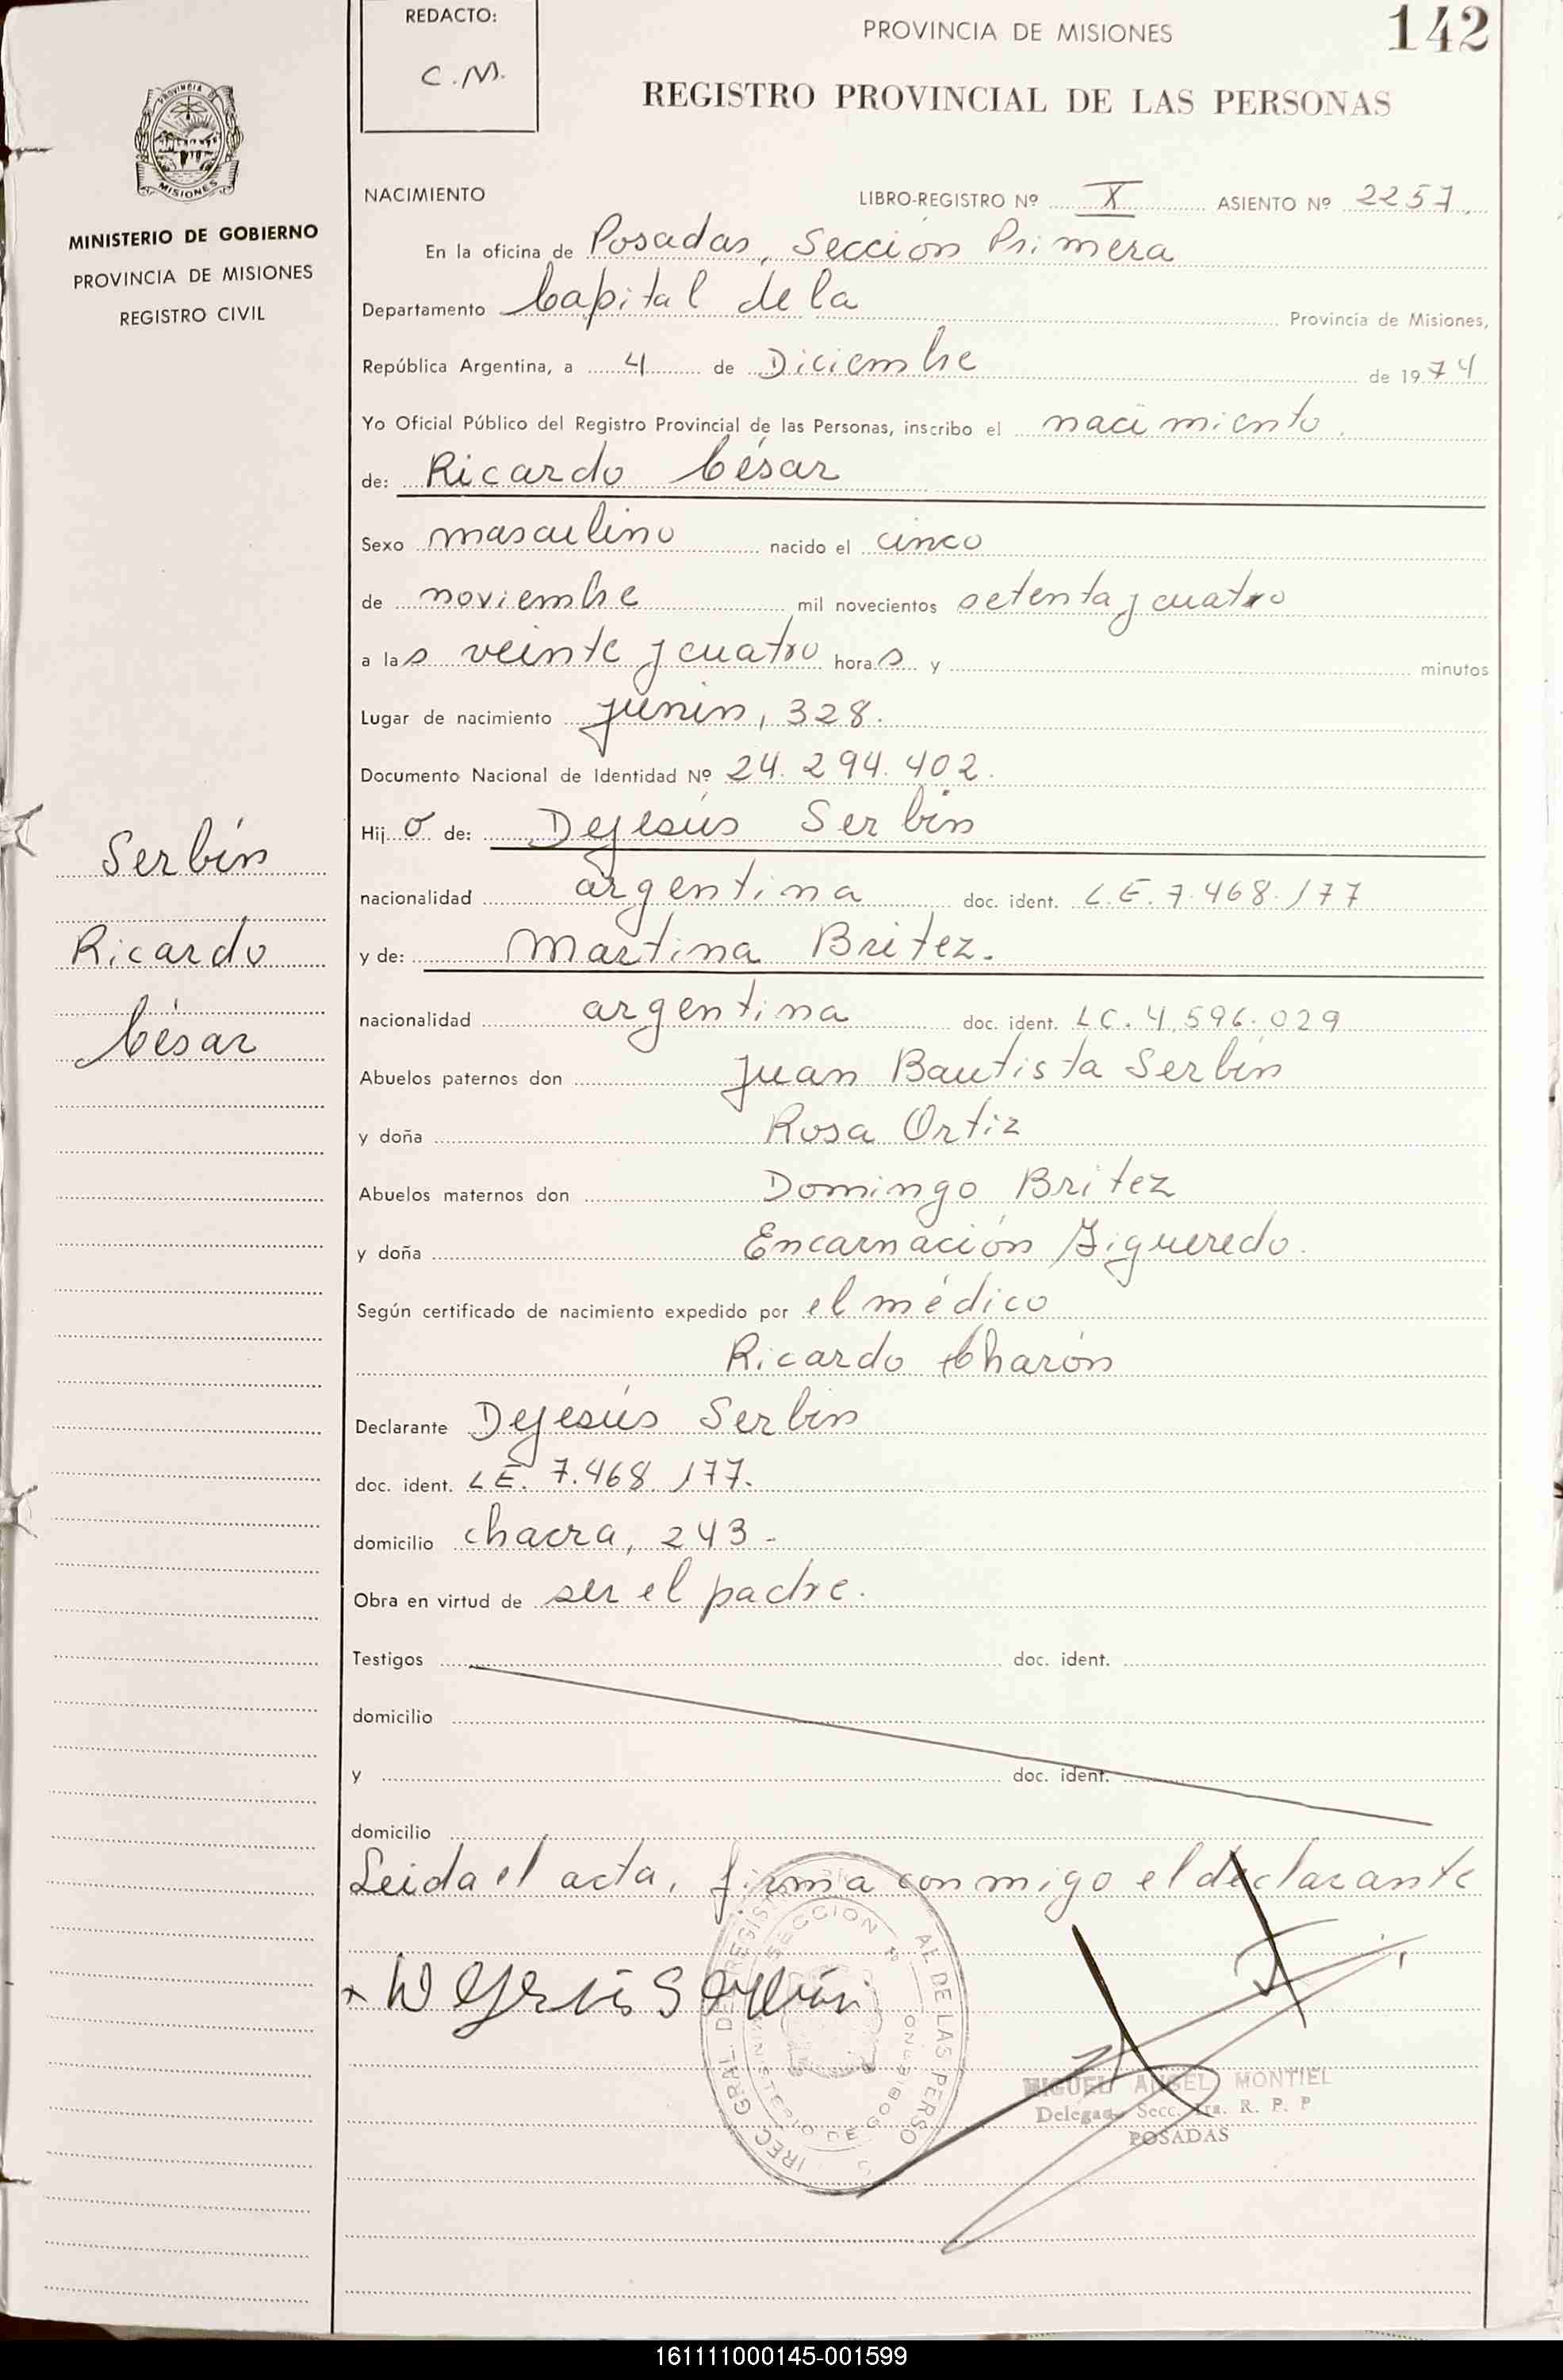 REDACTO:
C.M.
PROVINCIA DE MISIONES
142
REGISTRO PROVINCIAL DE LAS PERSONAS
PROVINCIA DE
MISIONES
MINISTERIO DE GOBIERNO
PROVINCIA DE MISIONES
REGISTRO CIVIL
NACIMIENTO LIBRO-REGISTRO Nº X ASIENTO Nº 2257.
En la oficina de Posadas, Sección Primera
Departamento Capital de la Provincia de Misiones,
República Argentina, a 4 de Diciembre de 1974
Yo Oficial Público del Registro Provincial de las Personas, inscribo el nacimiento.
de: Ricardo César
Sexo masculino nacido el cinco
de noviembre mil novecientos setenta y cuatro
a las veinte y cuatro horas y minutos
Lugar de nacimiento Junín, 328.
Documento Nacional de Identidad Nº 24.294.402.
Hijo de: Dejesús Serbín
nacionalidad argentina doc. ident. L.E. 7.468.177
y de: Martina Britez.
nacionalidad argentina doc. ident. LC. 4.596.029
Abuelos paternos don Juan Bautista Serbín
y doña Rosa Ortiz
Abuelos maternos don Domingo Britez
y doña Encarnación Figueredo.
Según certificado de nacimiento expedido por el médico
Ricardo Charón
Declarante Dejesús Serbín
doc. ident. L.E. 7.468.177.
domicilio chacra, 243.-
Obra en virtud de ser el padre.
Testigos doc. ident.
domicilio
y doc. ident.
domicilio
Leida el acta, firma conmigo el declarante
Serbín
Ricardo
César
MIGUEL ANGEL MONTIEL
Secc. 1ra. R. P. P
POSADAS
161111000145-001599